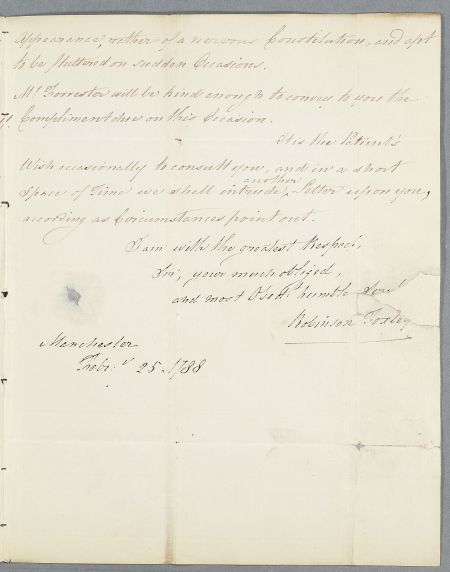 Appearance, rather of a nervous Constitution, and apt
to be fluttered on sudden Occasions.
Mr. Forrester will be kind enough to convey to you the
Compliment due on this Occasion.
It is the Patient's
Wish occasionally to consult you, and in a short
another
Space of Time we shall intrude ^ Letter upon you,
according as Circumstances point out.
I am with the greatest Respect,
Sir, your much obliged,
and most Obedt. humble Servt
Robinson Foxley
Manchester
Febr.y 25. 1788